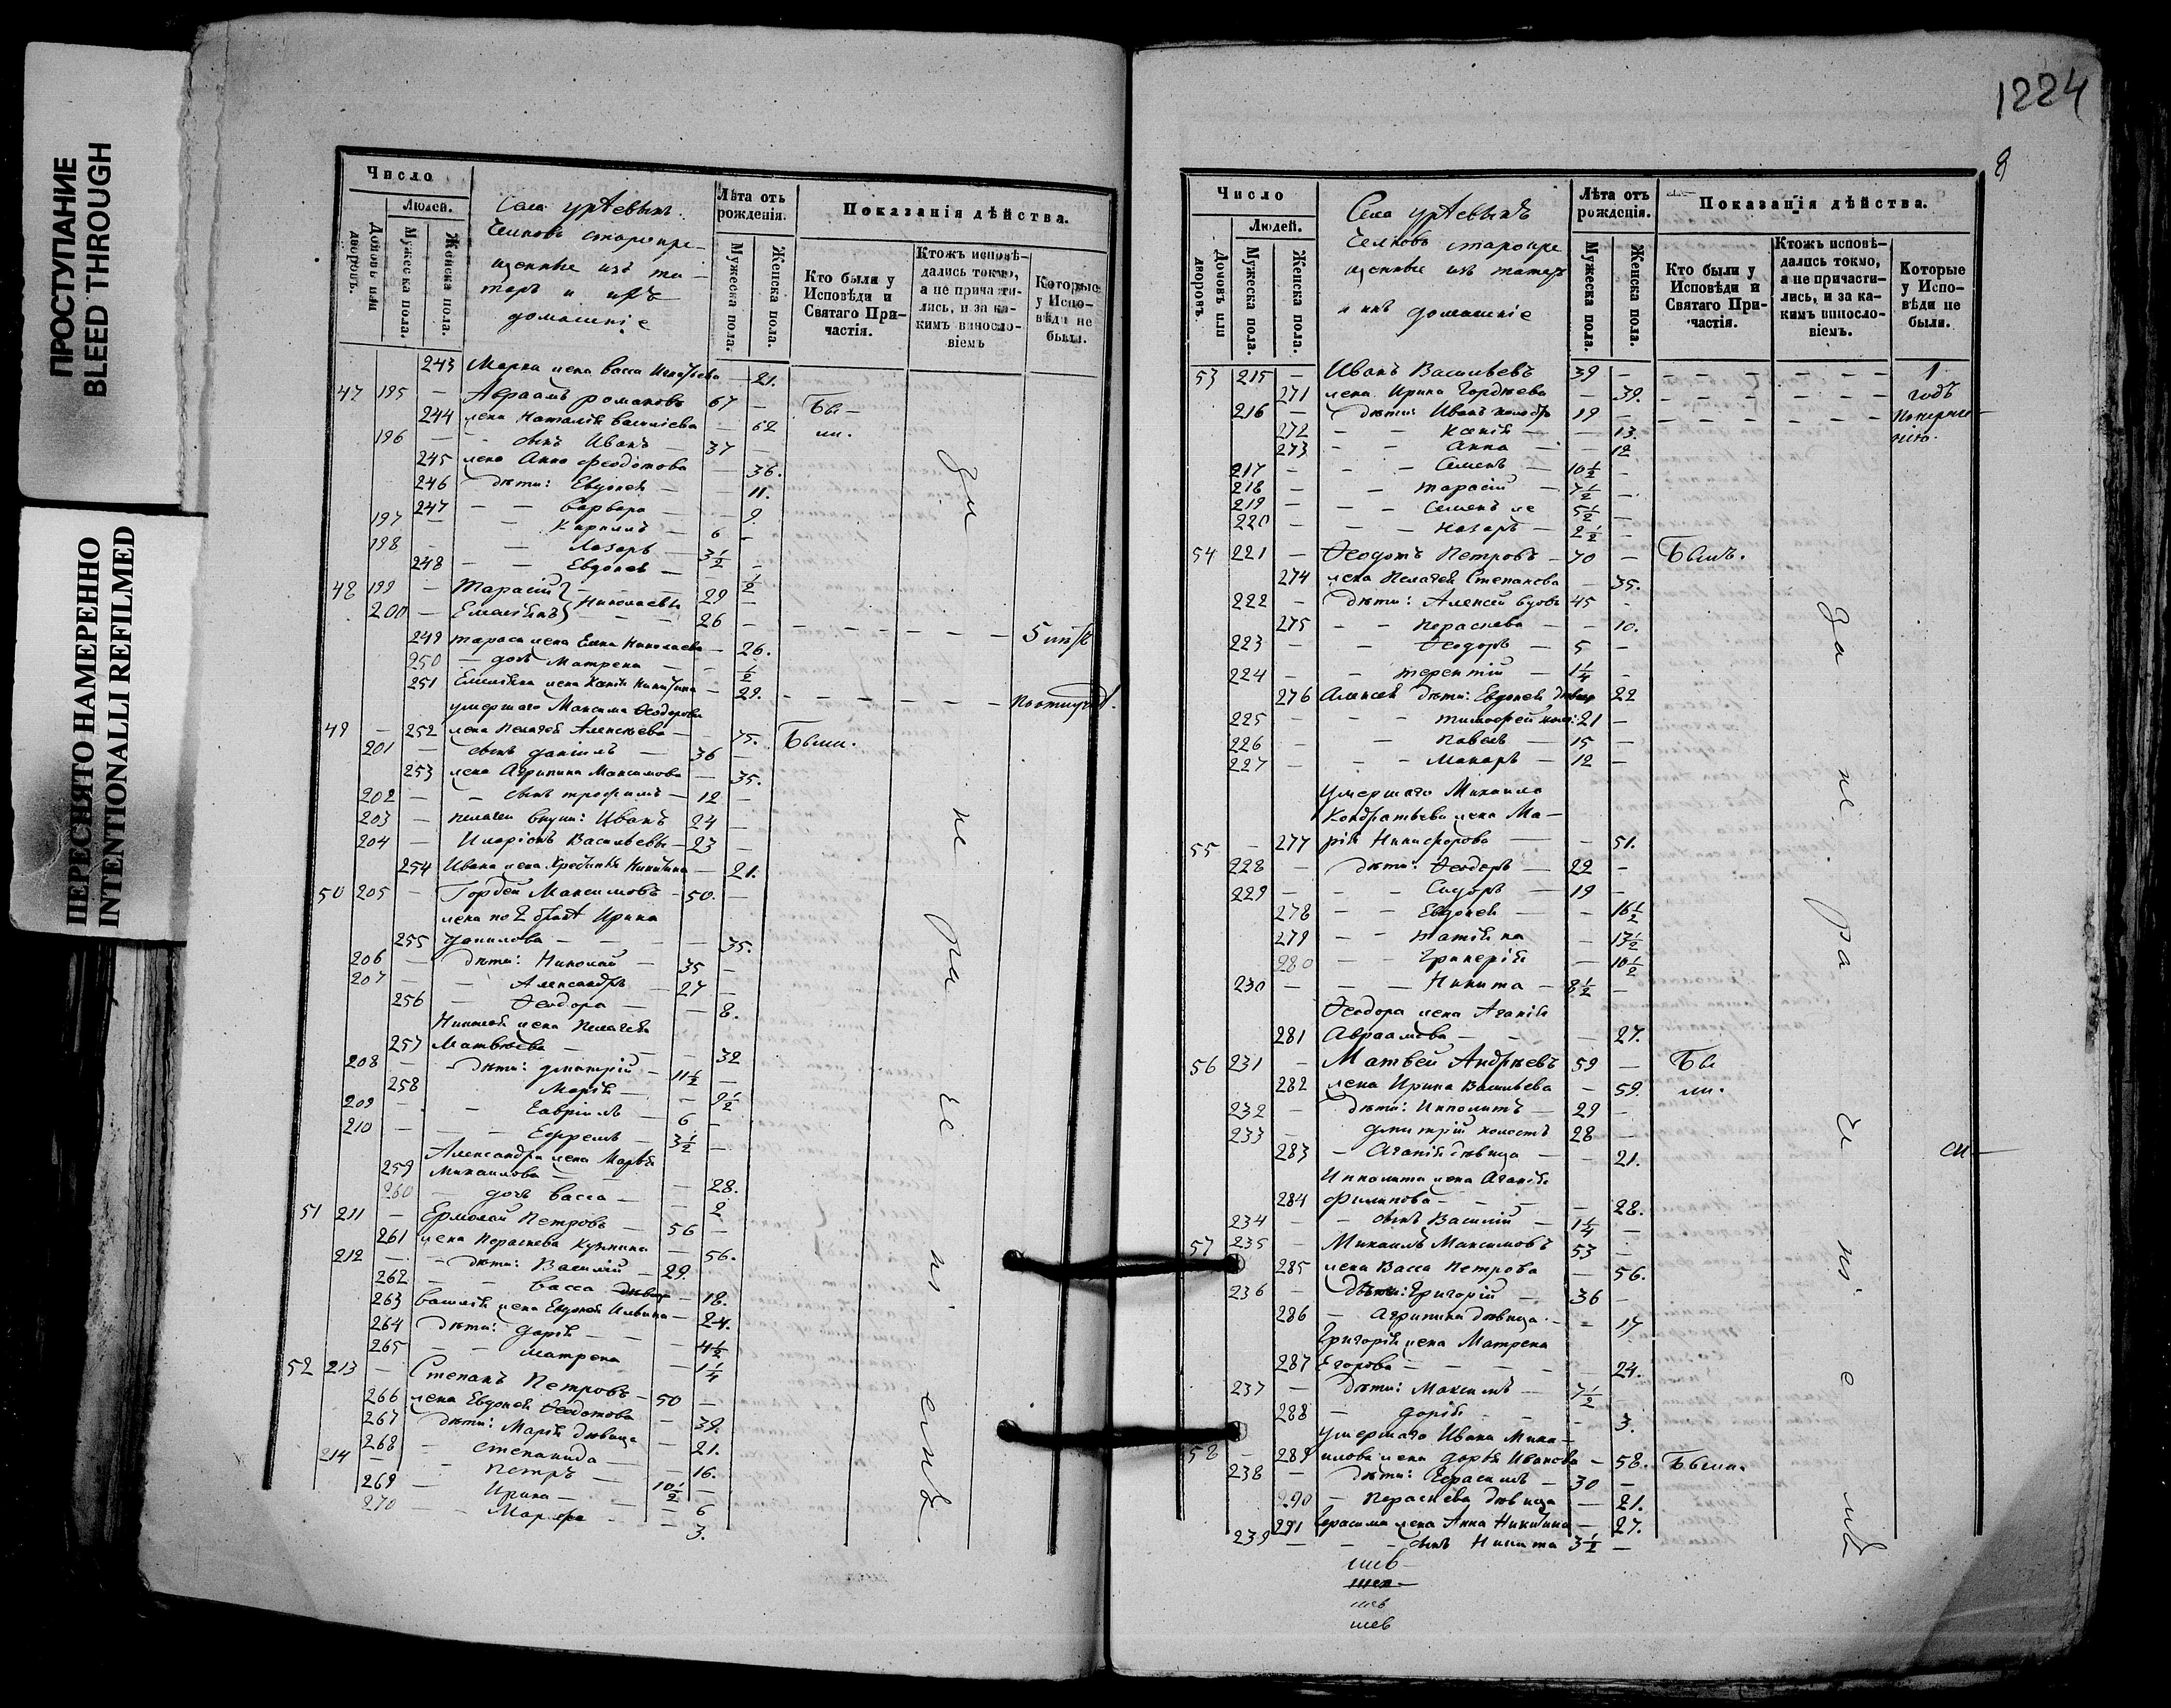 ПРОСТУПАНИЕ
BLEED THROUGH
ПЕРЕСНЯТО НАМЕРЕННО
INTENTIONALLI REFILMED
Число
Людей.
Домовъ или дворовъ.
Мужеска пола.
Женска пола.
Села
старокре-
щенные изъ та-
таръ и ихъ
домашніе
Лѣта отъ рожденія.
Мужеска пола.
Женска пола.
Показанія дѣйства.
Кто были у Исповѣди и Святаго При-частія.
Ктожъ исповѣ-дались токмо, а не причасти-лись, и за ка-кимъ винсло-віемъ
Которые у Испо-вѣди не были.
243 Марка жена Васса Игнатьева — 21.
47 195 — Авраамъ Романовъ 67 — Бы-
244 жена Наталія Василіева — 62 ли.
196 — сынъ Иванъ 37 —
245 жена Анна Феодотова — 36.
246 дѣти: Евдокея — — 11.
247 — — Варвара — — 9.
197 — — Кириллъ — 6 —
198 — — Лазарь — 3½ —
248 — — Евдокея — — ½
48 199 — Тарасій — 29 —
200 — Емеліянъ Николаевы — 26 —
249 Тараса жена Елена Николаева — 26. 5
250 — дочь Матрена — — ½
251 Емеліяна жена Ксенія Никитина — 29.
умершаго Максима Ѳеодорова
49 — 252 жена Пелагея Алексѣева — 75. Были.
201 — сынъ Даніилъ — 36 —
253 жена Агрипина Максимова — 35.
202 — — сынъ Трофимъ — 12 —
203 — Пелагеи внуки: Иванъ 24 —
204 — Иларіонъ Васильевы — 23 —
254 Ивана жена Никитина — 21.
50 205 — Гордей Максимовъ — 50. —
жена по 2 Ирина
255 Данилова — — — — 35.
206 — дѣти: Николай — 35 —
207 — — Александръ — 27 —
256 — Ѳеодора — — 8.
Николая жена Пелагея
257 Матвѣева — — 32
208 — — дѣти: Дмитрій — 11½ —
258 Марія — — 9½
209 — — Гавріилъ — 6 —
210 — — — Ефремъ — 3½ —
Александра жена Марѳа
259 Михаилова — — — 28.
260 — дочь Васса — — 2.
51 211 — Ермолай Петровъ — 56 —
261 жена Параскева Кузмина — 56.
212 — — дѣти: Василій — 29. —
262 — — Васса — 18.
263 Василія жена Евдокея Ильина — 24.
264 дѣти: Дарія — — — 4½
265 — — Матрена — 1¼
52 213 — Степанъ Петровъ — 50 —
266 жена Евдокея Ѳеодотова — 39.
267 дѣти: Марія дѣвица — 21.
268 — Степанида — — 16.
214 — — Петръ — 10½ —
269 — Ирина — — 6
270 — — Марѳа — — 3.
1224
Число
Людей.
Домовъ или дворовъ.
Мужеска пола.
Женска пола.
Села
старокре
щенные изъ татаръ
и ихъ домашніе
Лѣта отъ рожденія.
Мужеска пола.
Женска пола.
Показанія дѣйства.
Кто были у Исповѣди и Святаго При-частія.
Ктожъ исповѣ-дались токмо, а не причасти-лись, и за ка-кимъ винсло-віемъ.
Которые у Испо-вѣди не были.
53 215 — Иванъ Васильевъ 39 — 1
271 жена Ирина Гордѣева — 39. годъ
216 — дѣти: Иванъ 19 —
272 — — Ксенія — — 13.
273 — — Анна — — 12
217 — — — Семенъ — 10½ —
218 — — Тарасій — 7½ —
219 — — — Семенъ же 5½ —
220 — — — Назаръ — 2½ —
54 221 — Ѳеодотъ Петровъ — 70 — Былъ.
274 жена Пелагея Степанова — 35.
222 — дѣти: Алексей вдовъ 45 —
275 — — Параскева — — 10.
223 — — Ѳеодоръ — 5 —
224 — — Терентій — 1¼ —
276 Алексея дѣти: Евдокея дѣвица 22
225 — — — Тимоѳей 21 —
226 — — Павелъ — 15 —
227 — — — Макаръ — 12 —
умершаго Михаила
Кондратьева жена Ма-
55 — 277 рія Никифорова — — 51.
228 — дѣти: Ѳеодоръ — 22 —
229 — — — Сидоръ — 19 —
278 — — Евдокея — — 16½
279 — — Татіана — 13½
280 — — — 10½
230 — — — Никита — 8½ —
Ѳеодора жена Агаѳія
281 Авраамова — — — 27.
56 231 — Матвей Андрѣевъ 59 — Бы
282 жена Ирина Васильева — 59. ли.
232 — дѣти: Ипполитъ — 29 —
233 — Дмитрій холостъ 28 —
283 — Агаѳія дѣвица — — 21.
Ипполита жена Агаѳія
284 Филипова — — — — 28.
234 — — сынъ Василій — 1¼ —
57 235 — Михаилъ Максимовъ 53 —
285 жена Васса Петрова — 56.
236 — дѣти: Григорій — 36 —
286 — Агрипина дѣвица — — 17
Григорія жена Матрена
287 Егорова — — — — 24.
237 — дѣти: Максимъ — 7½
288 — Дарія — — — 3.
умершаго Ивана Миха-
58 — 289 илова жена Дарія Иванова — 58. Были.
238 — дѣти: Герасимъ — 30 —
290 — Параскева дѣвица — 21.
291 Герасима жена Анна Никитина — 27.
239 — — — сынъ Никита 3½ —